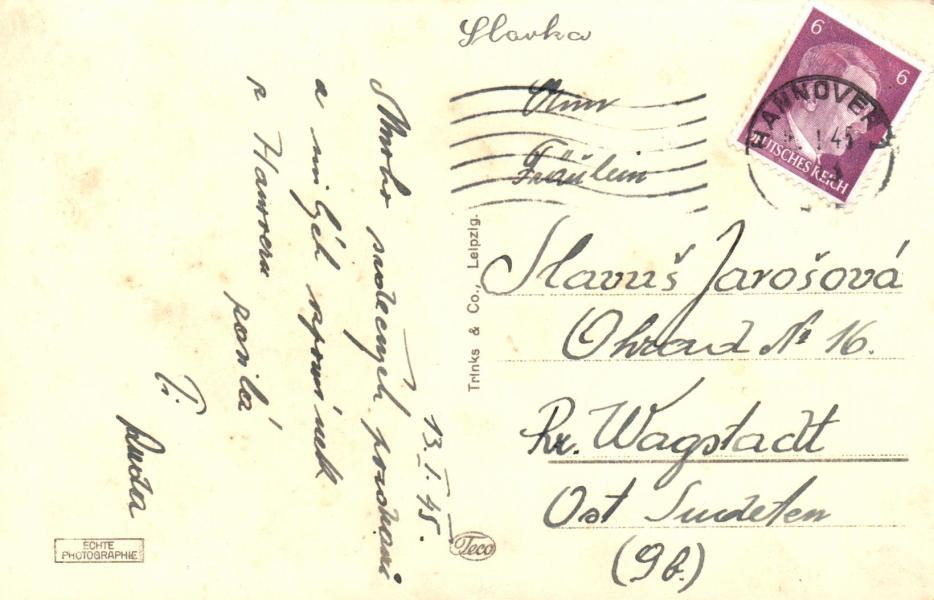 Slavka
6 6
HANNOVER
I. 45
DEUTSCHES REICH
Fräulein
Slavuš Jarošová
Ohrad № 16.
Kr. Wagstadt
Ost Sudeten
(9b.)
Trinks & Co., Leipzig.
Teco
13.I.45.
Mnoho srdečných pozdravů
a milých vzpomínek
z Hannovru posílá
Ti
ECHTE
PHOTOGRAPHIE